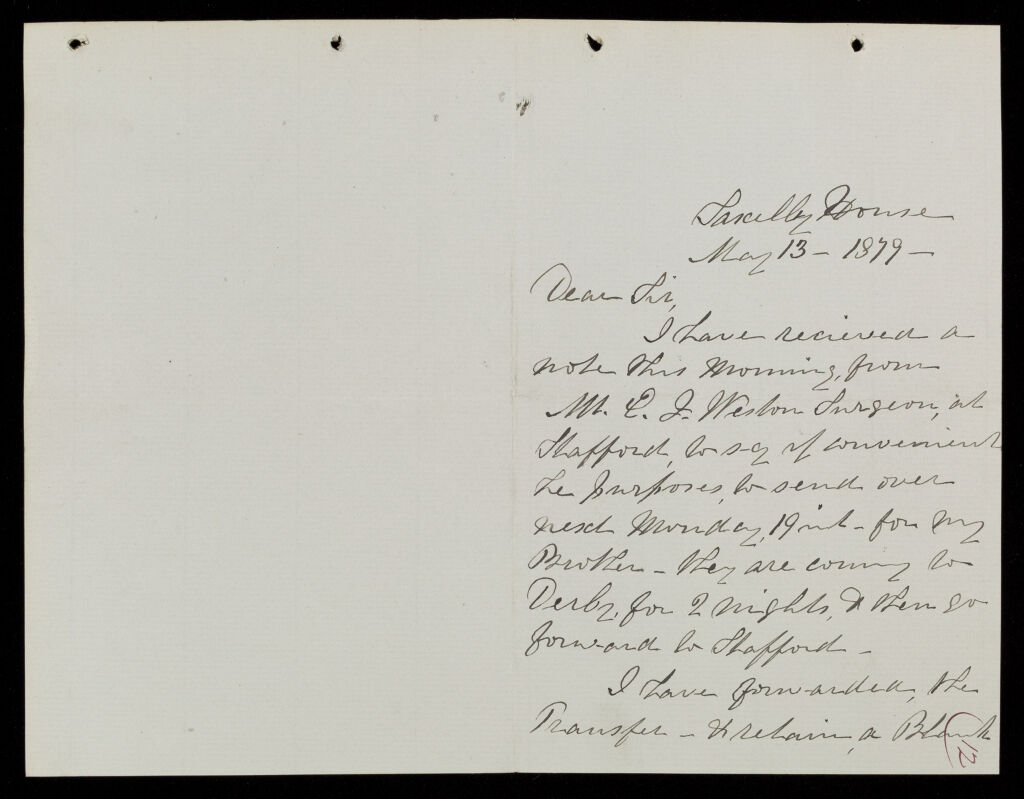 Saxelby House
May 13 - 1879 -
Dear Sir,
I have recieved a
note this Morning, from
Mr. E. J. Weston Surgeon, at
Stafford, to say if convenient
he purposes, to send over
next Monday, 19 inst - for my
Brother - they are coming to
Derby, for 2 nights, & then go
forward to Stafford -
I have forwarded, the
Transfer - & retain, a Blank
12